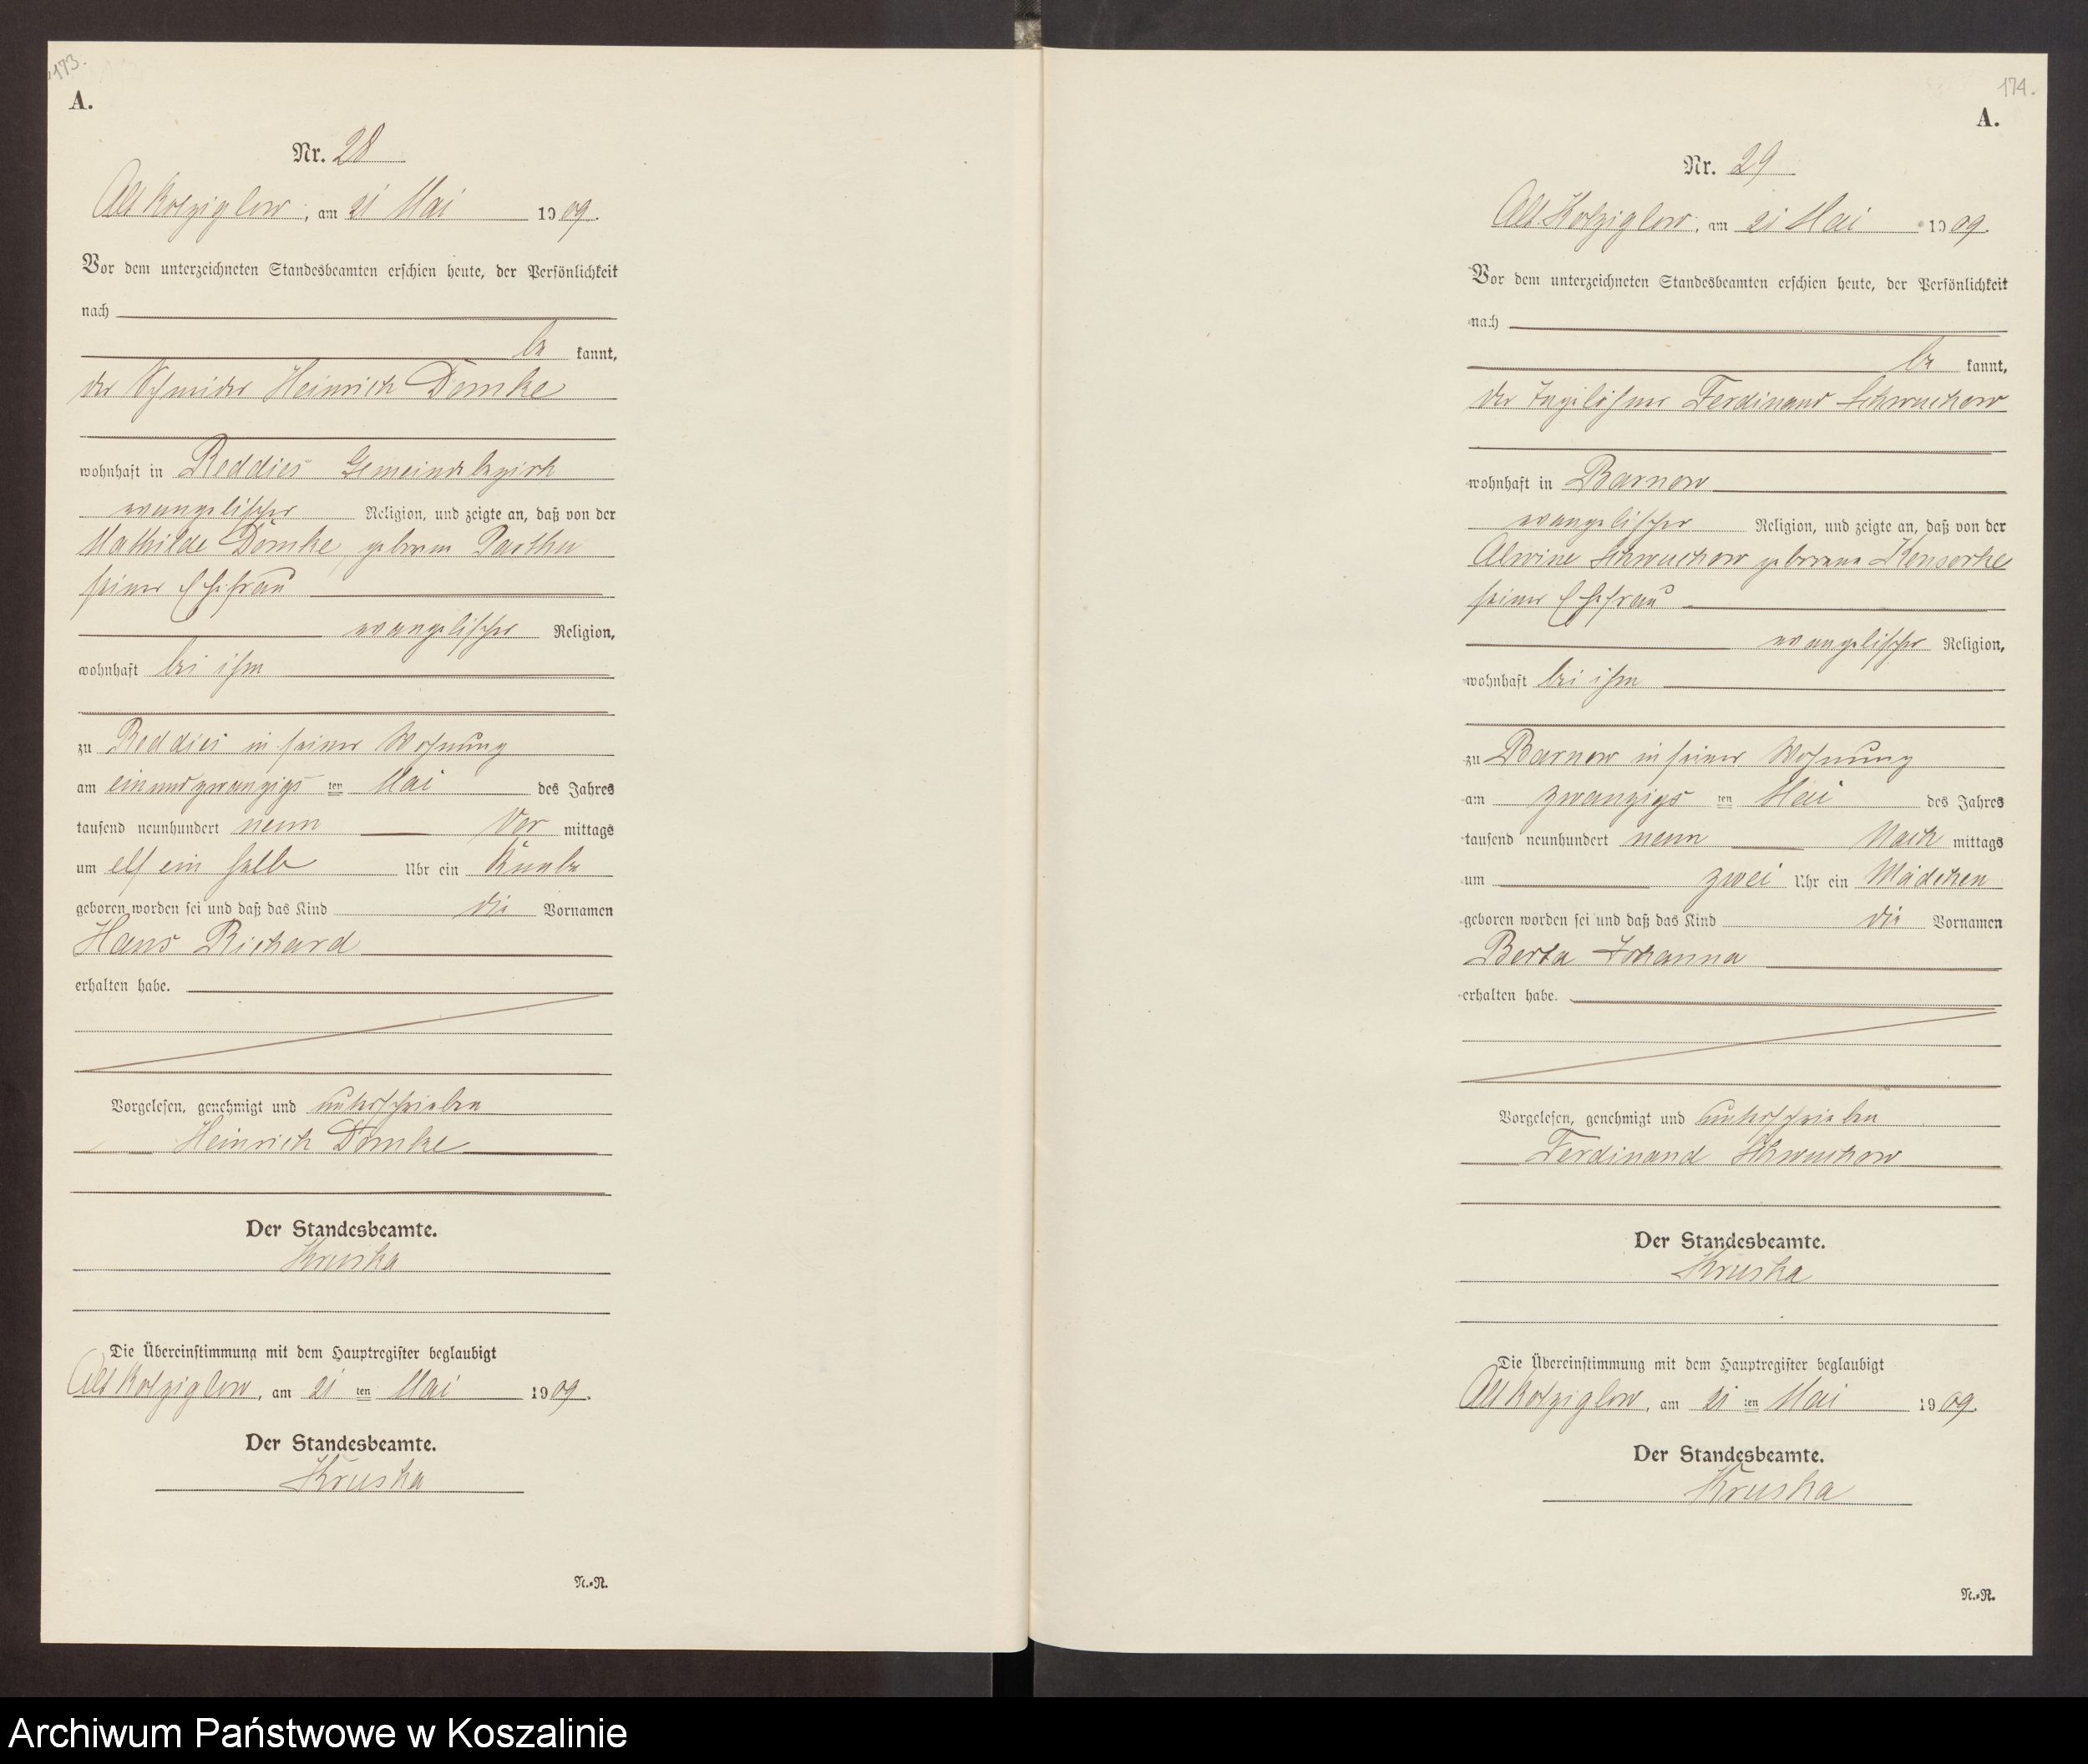 173.
A.
Nr. 28
Alt Kolziglow, am 21 Mai 1909.
Vor dem unterzeichneten Standesbeamten erschien heute, der Persönlichkeit
nach
be kannt,
der Schneider Heinrich Domke
wohnhaft in Reddies Gemeindebezirk
evangelischer Religion, und zeigte an, daß von der
Mathilde Domke geborene
seiner Ehefrau
evangelischer Religion,
wohnhaft bei ihm
zu Reddies in seiner Wohnung
am einundzwanzigs ten Mai des Jahres
tausend neunhundert neun Vor mittags
um elf ein halb Uhr ein Knabe
geboren worden sei und daß das Kind die Vornamen
Hans Richard
erhalten habe.
Vorgelesen, genehmigt und unterschrieben
Heinrich Domke
Der Standesbeamte.
Kruska
Die Übereinstimmung mit dem Hauptregister beglaubigt
Alt Kolziglow, am 21 ten Mai 1909.
Der Standesbeamte.
Kruska
N.=R.
174.
A.
Nr. 29
Alt Kolziglow, am 21 Mai 1909.
Vor dem unterzeichneten Standesbeamten erschien heute, der Persönlichkeit
nach
be kannt,
der Tagelöhner Ferdinand Schwuchow
wohnhaft in Barnow
evangelischer Religion, und zeigte an, daß von der
Alwine Schwuchow geborene Konsorke
seiner Ehefrau
evangelischer Religion,
wohnhaft bei ihm
zu Barnow in seiner Wohnung
am zwanzigs ten Mai des Jahres
tausend neunhundert neun Nach mittags
um zwei Uhr ein Mädchen
geboren worden sei und daß das Kind die Vornamen
Berta Johanna
erhalten habe.
Vorgelesen, genehmigt und unterschrieben
Ferdinand Schwuchow
Der Standesbeamte.
Kruska
Die Übereinstimmung mit dem Hauptregister beglaubigt
Alt Kolziglow, am 21 ten Mai 1909.
Der Standesbeamte.
Kruska
N.=R.
Archiwum Państwowe w Koszalinie